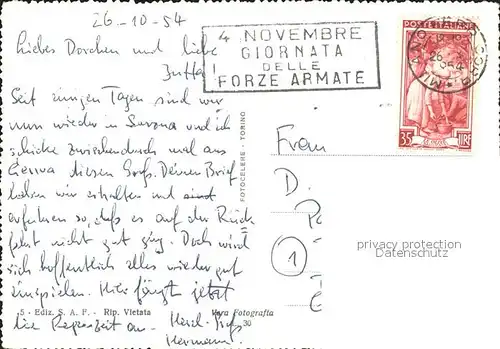 26.-10-54
Liebes Dorchen und liebe
Jutta!
Seit einigen Tagen sind wir
nun wieder in Savona und ich
schicke zwischendurch mal aus
Genua diesen Gruß. Deinen Brief
haben wir erhalten und
erfuhren so, daß es auf der Rück
fahrt nicht gut ging. Doch wird
sich hoffentlich alles wieder gut
einspielen. Hier fängt jetzt
die Regenzeit an. Herzl. Gruß
Hermann
4 NOVEMBRE
GIORNATA
DELLE
FORZE ARMATE
POSTE ITALIANE
26
54
35 LIRE
Frau
D.
1
FOTOCELERE - TORINO
5 - Ediz. S. A. F. - Rip. Vietata
Vera Fotografia
30
privacy protection
Datenschutz